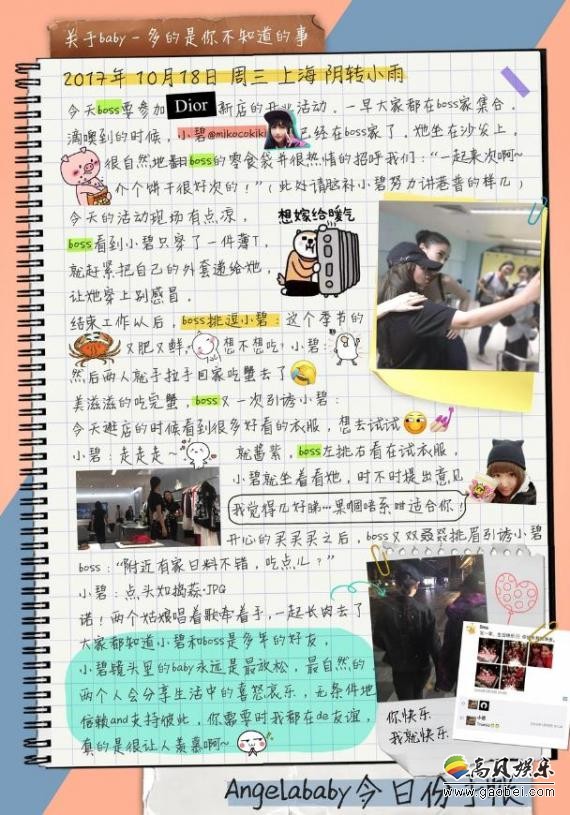 关于baby-多的是你不知道的事
2017年10月18日 周三 上海 阴转小雨
今天boss要参加 Dior 新店的开业活动，一早大家都在boss家集合，
滴噢到的时候，小碧@mikocokiki 已经在boss家了，她坐在沙发上，
很自然地翻boss的零食袋并很热情的招呼我们："一起来次啊~
介个饼干很好次的！"（此处请脑补小碧努力讲港普的样儿）
今天的活动现场有点凉，
想嫁给暖气
boss看到小碧只穿了一件薄T，
就赶紧把自己的外套递给她，
让她穿上别感冒。
结束工作以后，boss挑逗小碧：这个季节的
又肥又鲜，想不想吃？小碧：
然后两人就手拉手回家吃蟹去了
美滋滋的吃完蟹，boss又一次引诱小碧：
今天逛店的时候看到很多好看的衣服，想去试试
小碧：走走走~
就酱紫，boss左挑右看在试衣服，
小碧就坐着看她，时不时提出意见
我觉得几好睇…果嗰唔系咁适合你！
开心的买买买之后，boss又双叒叕挑眉引诱小碧
boss："附近有家日料不错，吃点儿？"
小碧：点头如捣蒜.JPG
诺！两个姑娘唱着歌牵着手，一起长肉去了
大家都知道小碧和boss是多年的好友，
小碧镜头里的baby永远是最放松，最自然的
两个人会分享生活中的喜怒哀乐，无条件地
信赖and支持彼此，你需要时我都在de友谊，
真的是很让人羡慕啊~
你快乐
我就快乐
Angelababy今日份手帐
高贝娱乐
www.gaobei.com